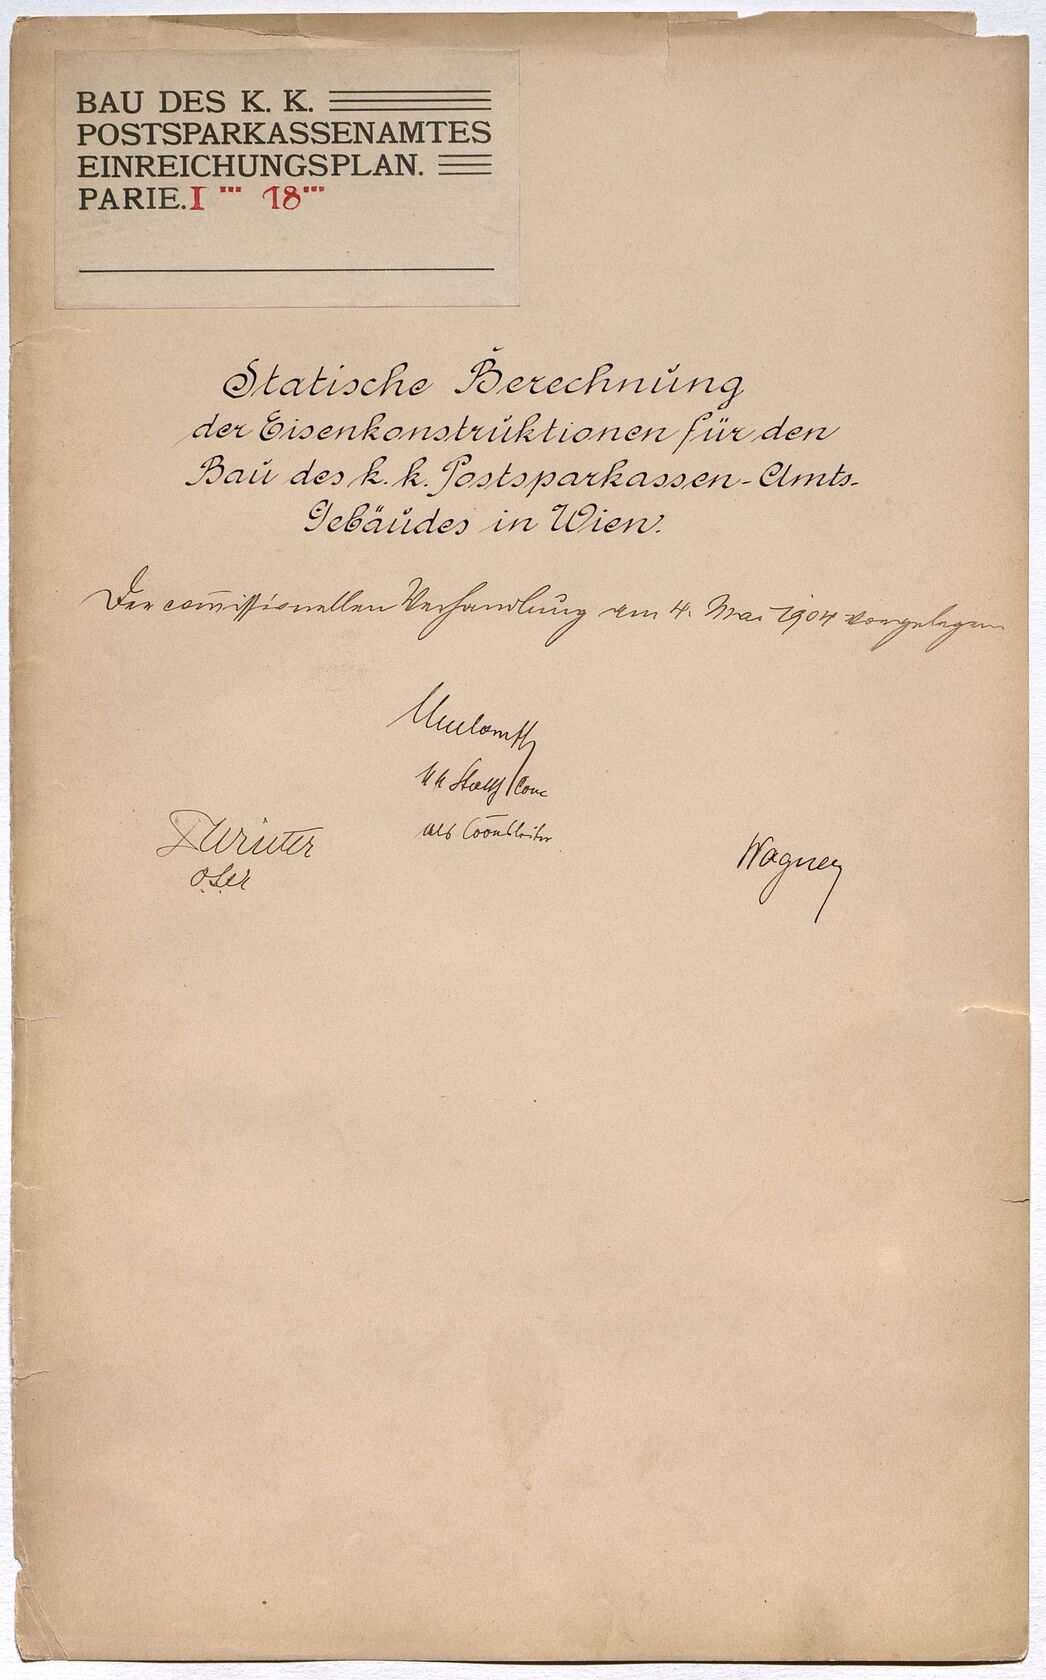 BAU DES K. K.
POSTSPARKASSENAMTES
EINREICHUNGSPLAN.
PARIE. I''' 18'''
Statische Berechnung
der Eisenkonstruktionen für den
Bau des k. k. Postsparkassen-Amts-
Gebäudes in Wien.
Der commissionellen Verhandlung am 4. Mai 1904 vorgelegen
Winter
Wagner